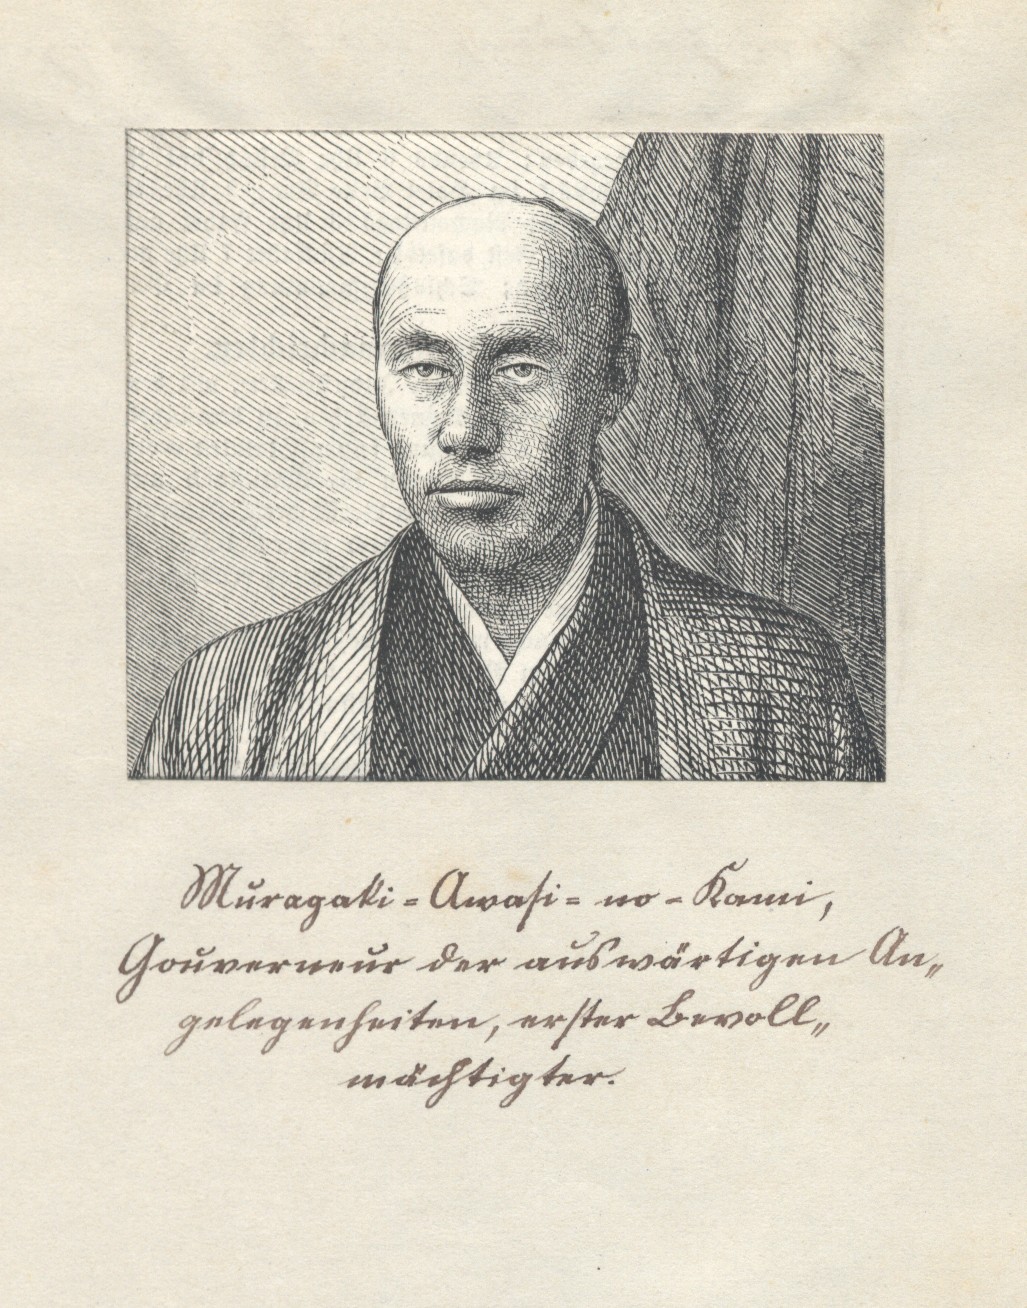 Muragaki=Awasi=no=Kami,
Gouverneur der auswärtigen An„
gelegenheiten, erster Bevoll„
mächtigter.